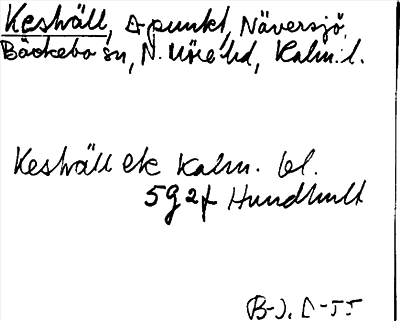 Keshväll, Δ punkt, Näversjö,
Bäckebo sn, N. Möre hd, Kalm. l.
Keshväll ek Kalm. bl.
5g2f Hundhult